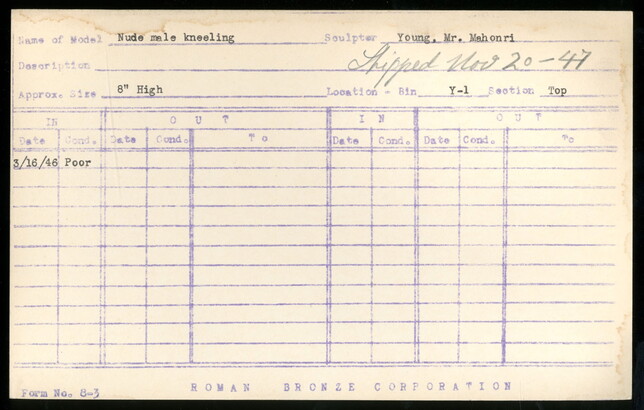 Name of Model Nude male kneeling Sculptor Young, Mr. Mahonri
Description Shipped Nov 20-47
Approx. Size 8" High Location - Bin Y-1 Section Top
IN OUT IN OUT
Date Cond. Date Cond. To Date Cond. Date Cond. To
3/16/46 Poor
Form No. 8-3 ROMAN BRONZE CORPORATION